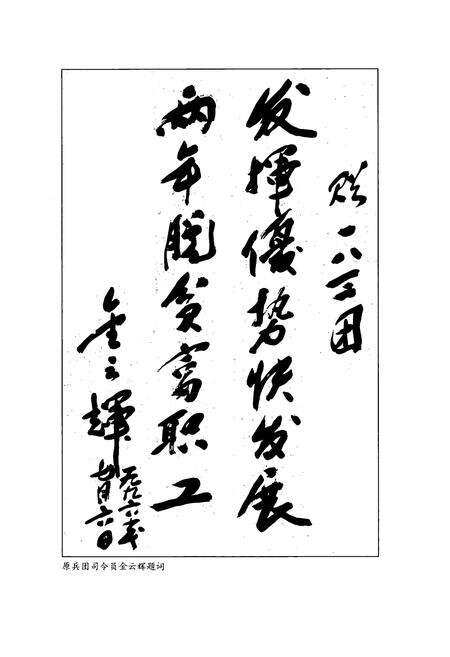 赠一八三团
发挥優势快发展
两年脱贫富职工
金云輝
一九九六年
七月六日
原兵团司令员金云辉题词